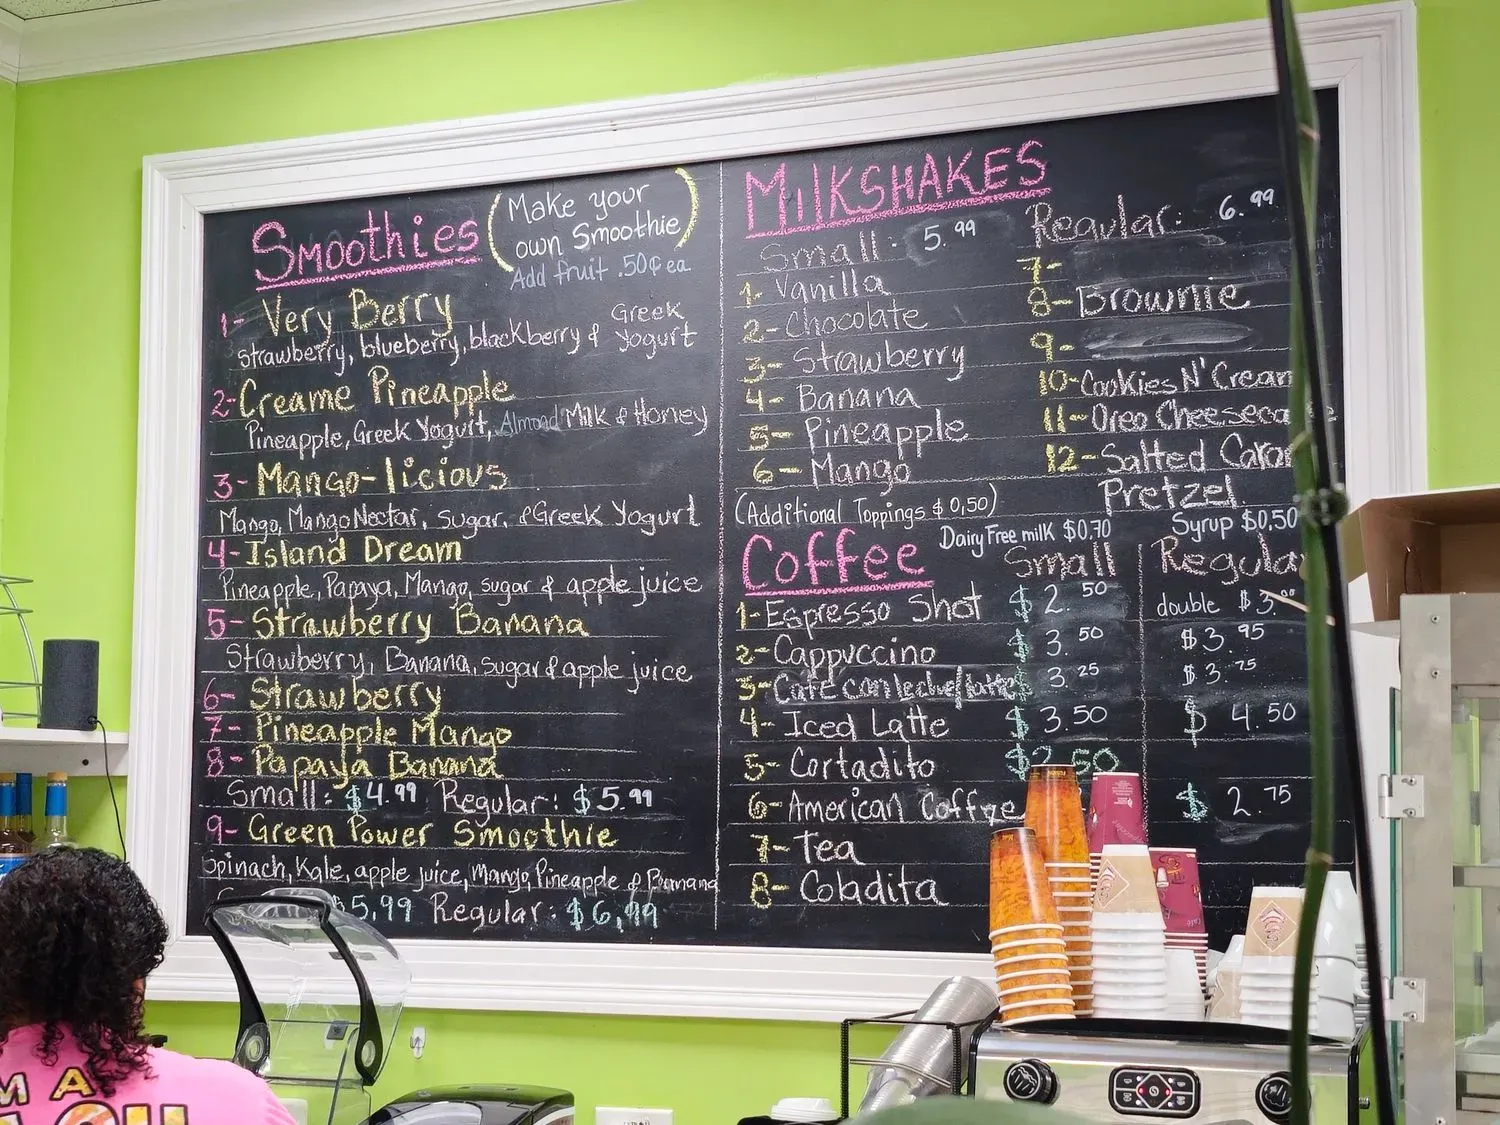 Smoothies (Make your
own Smoothie)
Add fruit .50¢ ea
1- Very Berry
strawberry, blueberry, blackberry & Greek
Yogurt
2- Creame Pineapple
Pineapple, Greek Yogurt, Almond Milk & Honey
3- Mango-licious
Mango, Mango Nectar, sugar, & Greek Yogurt
4- Island Dream
Pineapple, Papaya, Mango, sugar & apple juice
5- Strawberry Banana
Strawberry, Banana, sugar & apple juice
6- Strawberry
7- Pineapple Mango
8- Papaya Banana
Small: $4.99 Regular: $5.99
9- Green Power Smoothie
Spinach, Kale, apple juice, Mango, Pineapple & Banana
$5,99 Regular: $6,99
MILKSHAKES
Small: 5.99
1- Vanilla
2- Chocolate
3- Strawberry
4- Banana
5- Pineapple
6- Mango
(Additional Toppings $0,50)
Regular: 6.99
7-
8- Brownie
9-
10- Cookies N' Cream
11- Oreo Cheeseca
12- Salted Caram
Pretzel
Coffee
Dairy Free milk $0.70 Syrup $0,50
Small Regular
1- Espresso Shot $2.50 double $3.00
2- Cappuccino $3.50 $3.95
3- Café con leche/latte $3.25 $3.75
4- Iced Latte $3.50 $4.50
5- Cortadito $2.50
6- American Coffee $2.75
7- Tea
8- Coladita
M A